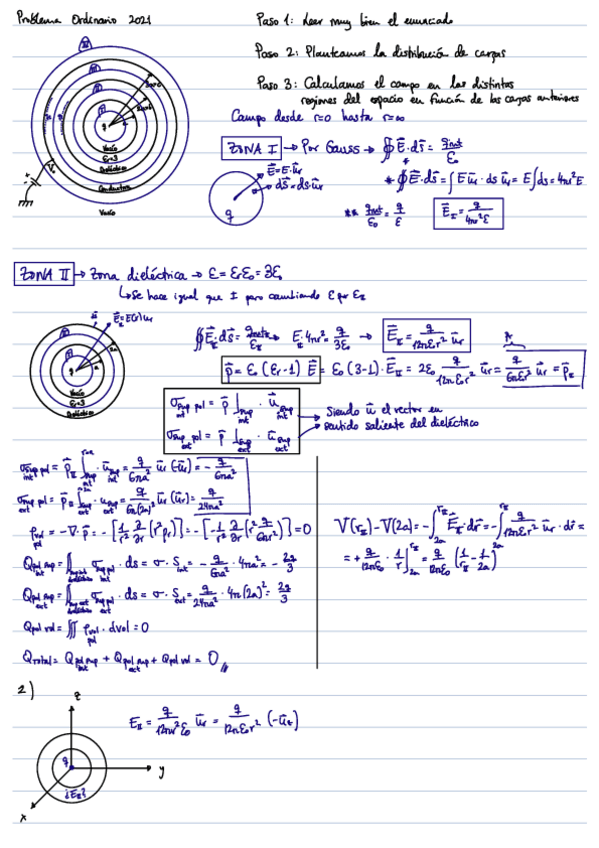 Problema Ordinario 2021
Paso 1: Leer muy bien el enunciado
Paso 2: Planteamos la distribución de cargas
Paso 3: Calculamos el campo en las distintas
regiones del espacio en función de las cargas anteriores
Campo desde r=0 hasta r=∞
q
Vacío
εr=3
Dieléctrico
Conductor
Vacío
V₀
ZONA I → Por Gauss → ∮E⃗·ds⃗ = qint/ε₀
E⃗=E·u⃗r
ds⃗=ds·u⃗r
q
* ∮E⃗·ds⃗ = ∫E u⃗r · ds u⃗r = E∫ds = 4πr²E
** qint/ε₀ = q/ε
E⃗I = q/4πr²ε
ZONA II → Zona dieléctrica → ε=εrε₀=3ε₀
↳ Se hace igual que I pero cambiando ε por εII
E⃗II=E(r)u⃗r
q
a
2a
Vacío
εr=3
Dieléctrico
∯E⃗II·ds⃗ = qint/εII → EII·4πr² = q/3ε₀ → E⃗II = q/12πε₀r² u⃗r
p⃗ = ε₀(εr-1)E⃗ = ε₀(3-1)·E⃗II = 2ε₀ q/12πε₀r² u⃗r = q/6πr² u⃗r = p⃗II
σsup pol int = p⃗]sup int · u⃗sup int
σsup pol ext = p⃗]sup ext · u⃗sup ext
Siendo u⃗ el vector en
sentido saliente del dieléctrico
σsup pol int = p⃗II] · u⃗sup int = q/6πa² u⃗r(-u⃗r) = -q/6πa²
σsup pol ext = p⃗II] · u⃗sup ext = q/6π(2a)² u⃗r(u⃗r) = q/24πa²
ρvol pol = -∇·p⃗ = -[1/r² ∂/∂r(r²pr)] = -[1/r² ∂/∂r(r² q/6πr²)] = 0
Qpol sup int = ∫ σsup pol · ds = σ·Sint = -q/6πa² · 4πa² = -2q/3
Qpol sup ext = ∫ σsup pol · ds = σ·Sext = q/24πa² · 4π(2a)² = 2q/3
Qpol vol = ∭ρvol pol · dvol = 0
Qtotal = Qpol sup int + Qpol sup ext + Qpol vol = 0
V(rII)-V(2a) = -∫E⃗II·dr⃗ = -∫q/12πε₀r² u⃗r · dr⃗ =
= + q/12πε₀ · 1/r] = q/12πε₀ (1/rII - 1/2a)
2)
z
q
¿EII?
y
x
EII = q/12πr²ε₀ u⃗r = q/12πε₀r² (-u⃗z)